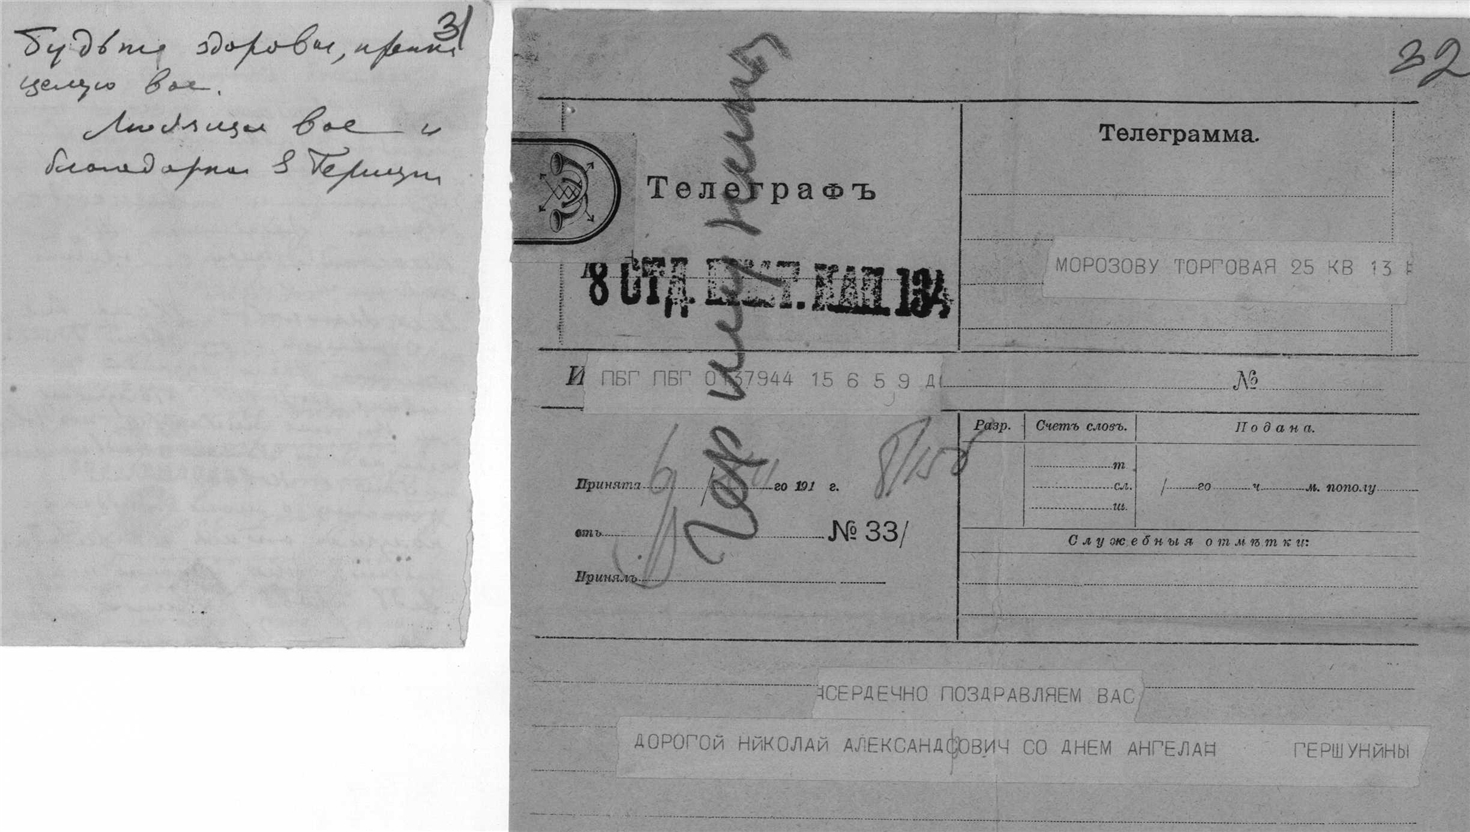 31
Будьте здоровы, крепко
целую вас.
Любящая вас и
благодарная
32
Телеграфъ
Телеграмма.
8 ОТД. 134
МОРОЗОВУ ТОРГОВАЯ 25 КВ 13
И ПБГ ПБГ 0137944 15 6 5 9 Д
№
Разр. Счетъ словъ. Подана.
т
сл.
ш.
/ го ч. м. пополу
Принята 6/ го 191 г.
отъ № 33/
Принялъ
Служебныя отмѣтки:
СЕРДЕЧНО ПОЗДРАВЛЯЕМ ВАС
ДОРОГОЙ НЙКОЛАЙ АЛЕКСАНДРОВИЧ СО ДНЕМ АНГЕЛАН ГЕРШУНЙНЫ